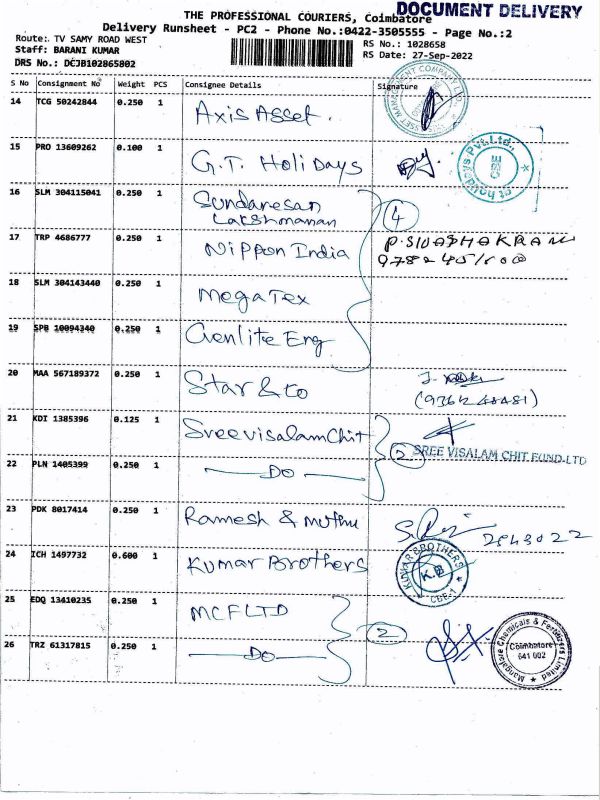 DOCUMENT DELIVERY
THE PROFESSIONAL COURIERS, Coimbatore
Delivery Runsheet - PC2 - Phone No.:0422-3505555 - Page No.:2
Route: TV SAMY ROAD WEST
RS No.: 1028658
Staff: BARANI KUMAR
RS Date: 27-Sep-2022
DRS No.: DCJB102865802
S No Consignment No Weight PCS Consignee Details Signature
14 TCG 50242844 0.250 1 Axis Asset.
15 PRO 13609262 0.100 1 G.T. Holidays
CBE
16 SLM 304115041 0.250 1 Sundaresan
Lakshmanan
4
17 TRP 4686777 0.250 1 Nippon India
18 SLM 304143440 0.250 1 MegaTex
19 SPB 10094340 0.250 1 Genlite Eng
20 MAA 567189372 0.250 1 Star & Co
21 KDI 1385396 0.125 1 Sreevisalam Chit
2 SREE VISALAM CHIT FUND LTD
22 PLN 1405399 0.250 1 DO
23 PDK 8017414 0.250 1 Ramesh & Muthu
2543022
24 ICH 1497732 0.600 1 Kumar Brothers
KUMAR BROTHERS
K.B
CBE-1
25 EDQ 13410235 0.250 1 MCFLTD
2
26 TRZ 61317815 0.250 1 DO
Mangalore Chemicals & Fertilizers Limited
Coimbatore
641 002